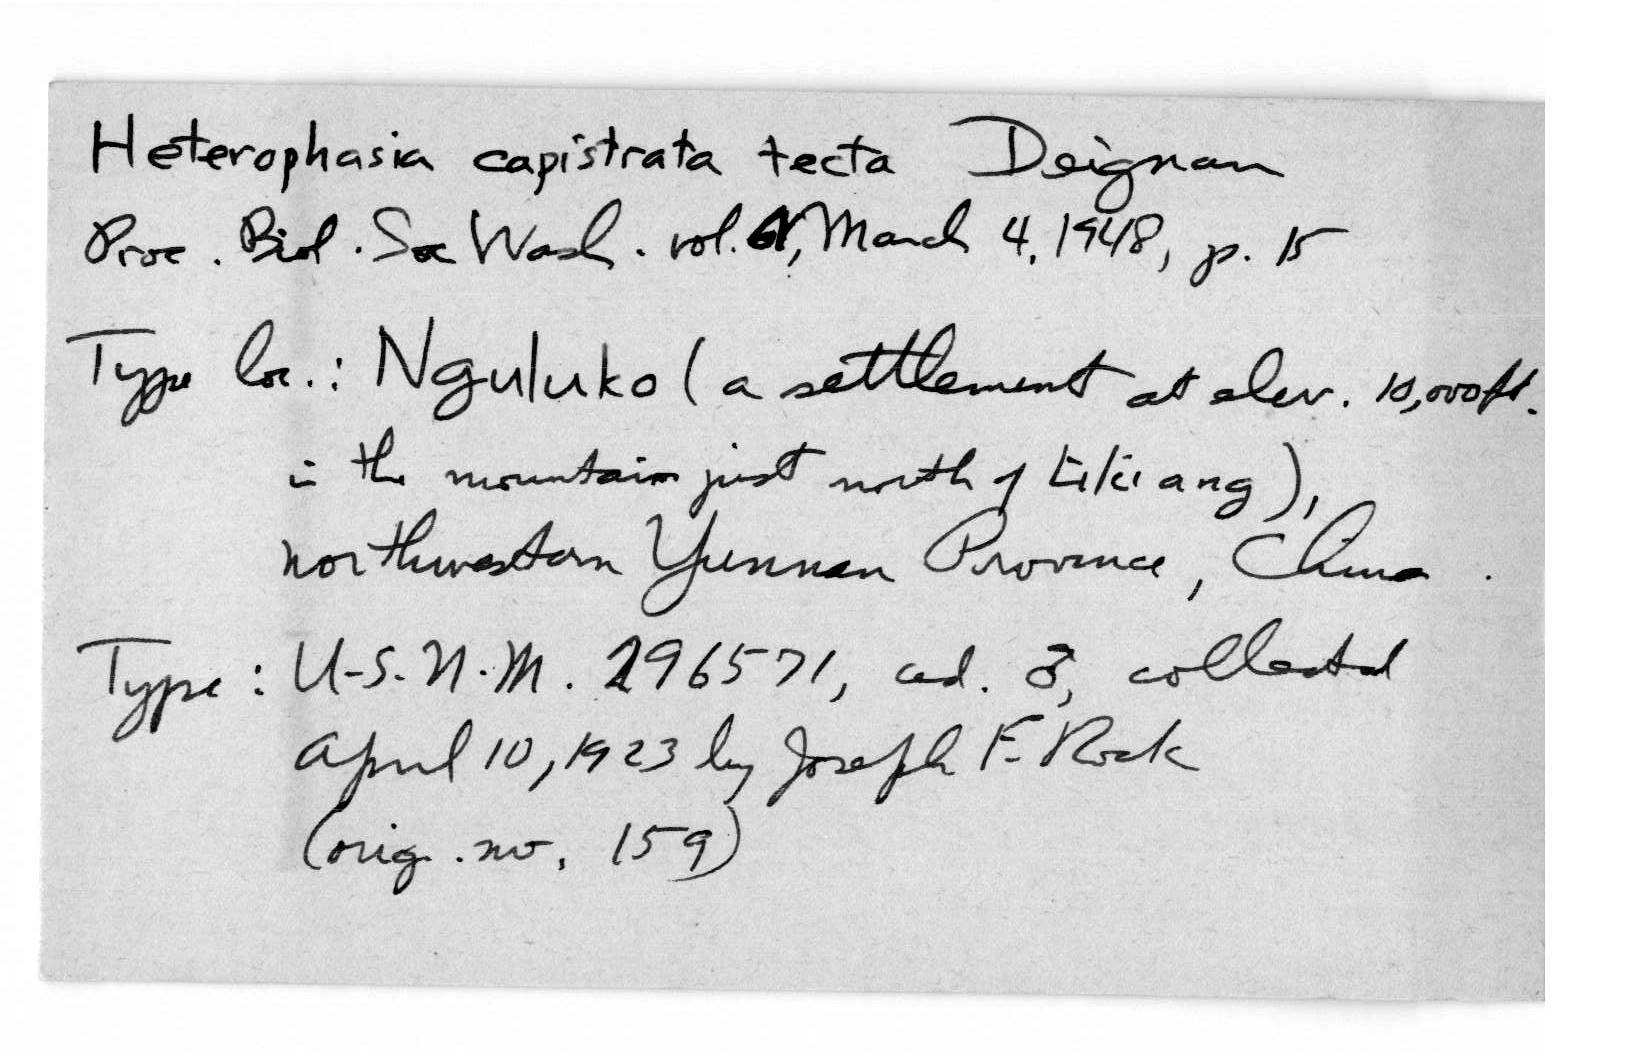 Heterophasia capistrata tecta Deignan
Proc. Biol. Soc Wash. vol. 61, March 4, 1948, p. 15
Type loc.: Nguluko (a settlement at elev. 10,000 ft.
in the mountain just north of Likiang),
northwestern Yunnan Province, China.
Type: U.S.N.M. 296571, ad. ♂, collected
April 10, 1923 by Joseph F. Rock
(orig. no. 159)